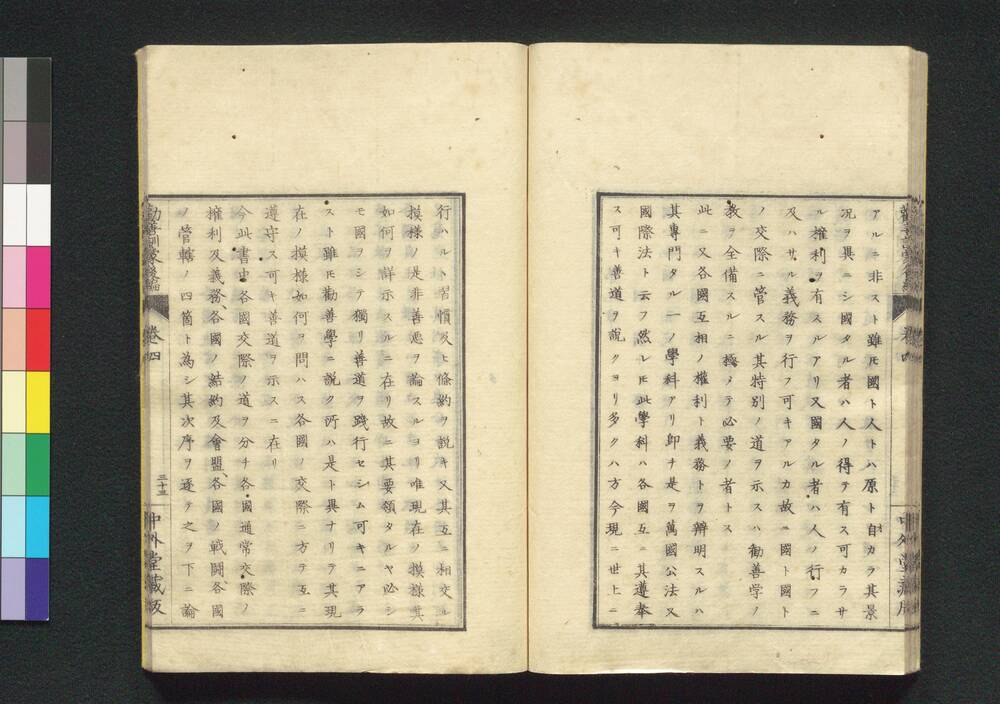 アルニ非スト雖𪜈國ト人トハ原ト自カラ其景
况ヲ異ニシ國タル者ハ人ノ得テ有ス可カラサ
ル權利ヲ有スルアリ又國タル者ハ人ノ行フニ
及ハサル義務ヲ行フ可キアルカ故ニ國ト國ト
ノ交際ニ管スル其特別ノ道ヲ示スハ勸善學ノ
教ヲ全備スルニ極メテ必要ノ者トス
此ニ又各國互相ノ權利ト義務トヲ辯明スルハ
其專門タル一ノ學科アリ卽チ是ヲ萬國公法又
國際法ト云フ然レ𪜈此學科ハ各國互ニ其遵奉
ス可キ善道ヲ說クヨリ多クハ方今現ニ世上ニ
行ハルヽ習慣及ヒ條約ヲ說キ又其互ニ相交ル
摸樣ノ是非善惡ヲ論スルヨリ唯現在ノ摸樣其
如何ヲ詳示スルニ在リ故ニ其要領タルヤ必シ
モ國ヲシテ獨リ善道ヲ踐行セシム可キニアラ
スト雖𪜈勸善學ニ說ク所ハ是ト異ナリテ其現
在ノ摸樣如何ヲ問ハス各國ノ交際ニ方テ互ニ
遵守ス可キ善道ヲ示スニ在リ
今此書中各國交際ノ道ヲ分チ各國通常交際ノ
權利及義務、各國ノ結約及會盟、各國ノ戰鬪、各國
ノ管轄ノ四箇ト為シ其次序ヲ逐テ之ヲ下ニ論
勸善訓蒙後編
卷四
三十五
中外堂藏版